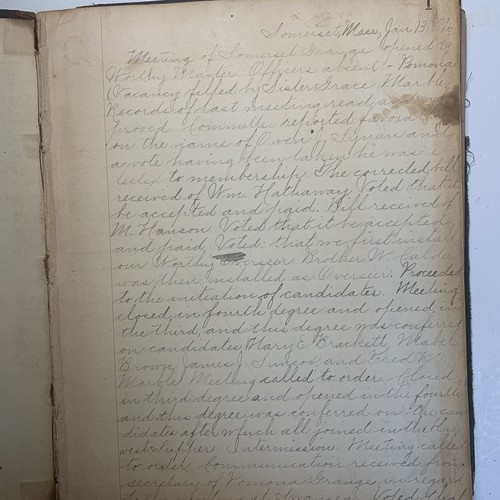 1
Somerset, Mass, Jan 13,
Meeting of Somerset Grange opened by
Worthy Master Officers absent:- Pomona
(Vacancy filled by Sister Grace Marble)
Records of last meeting read, and ap
proved. Committee reported favora
on the name of Owen J. Synan and
a vote having been taken he was e
lected to membership. The corrected bill
received of Wm. Hathaway Voted that it
be accepted and paid. Bill received of
M. Hanson. Voted that it be accepted
and paid. Voted: that we first install
our Worthy Overseer Brother W. Calde
was then installed as Overseer. Proceeded
to the initiation of candidates. Meeting
closed in fourth degree and opened in
the third, and this degree was conferred
on candidates, Mary E. Brackett, Mabel
Brown, James J. Simcox, and Fred W.
Marble Meeting called to order. Closed
in third degree and opened in the fourth
and this degree was conferred on the can
didates after which all joined in the Har
vest Supper. Intermission. Meeting called
to order. Communication received from
secretary of Pomona Grange in regard
Voted that